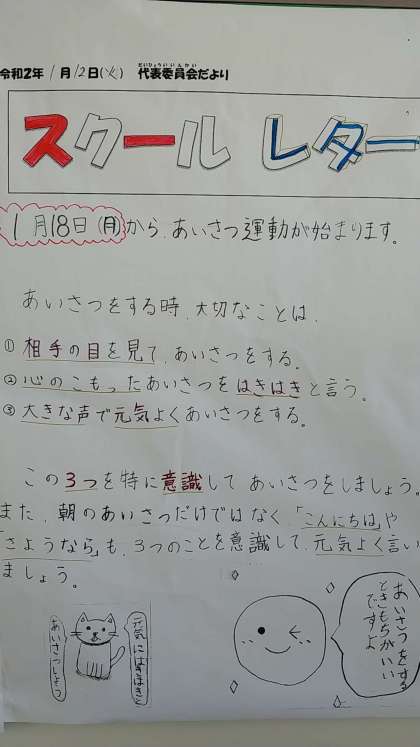 令和2年 1月12日(火) 代表委員会だより
だいひょういいんかい
スクールレター
1月18日(月)から、あいさつ運動が始まります。
あいさつをする時、大切なことは、
① 相手の目を見て、あいさつをする。
② 心のこもったあいさつをはきはきと言う。
③ 大きな声で元気よくあいさつをする。
この3つを特に意識してあいさつをしましょう。
また、朝のあいさつだけではなく、「こんにちは」や
「さようなら」も、3つのことを意識して、元気よく言い
ましょう。
あいさつをする
ときもちがいい
ですよ
元気にはきはきと
あいさつしよう